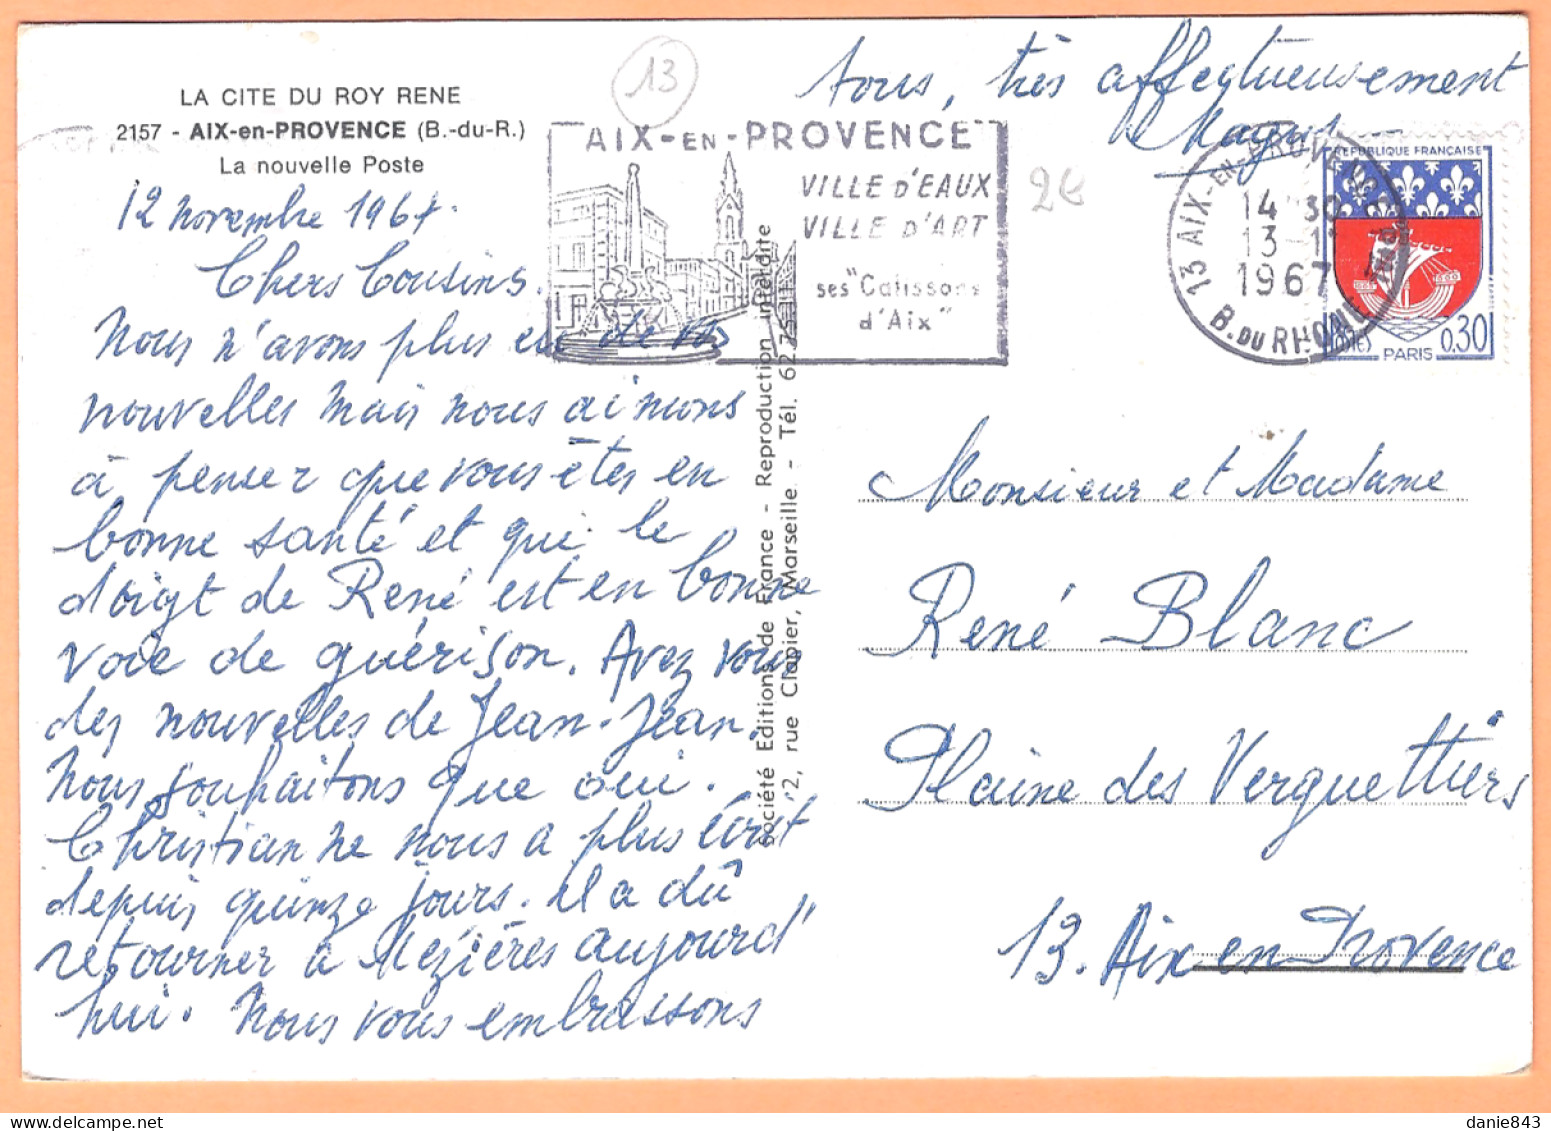 LA CITE DU ROY RENE
2157 - AIX-en-PROVENCE (B.-du-R.)
La nouvelle Poste
12 novembre 1967.
Chers Cousins.
Nous n'avons plus eu de vos
nouvelles mais nous aimons
à penser que vous êtes en
bonne santé et que le
doigt de René est en bonne
voie de guérison. Avez vous
des nouvelles de Jean-Jean.
Nous souhaitons que oui.
Christian ne nous a plus écrit
depuis quinze jours. Il a dû
retourner à Mézières aujourd'
hui. Nous vous embrassons
tous, très affectueusement
13
2€
AIX-EN-PROVENCE
VILLE D'EAUX
VILLE D'ART
ses "Calissons
d'Aix"
13 AIX-EN-PROVENCE
14 30
13-11
1967
B. DU RHONE
REPUBLIQUE FRANÇAISE
PARIS
0,30
Société Editions de France - Reproduction interdite
2, rue Clapier, Marseille - Tél. 62.
Monsieur et Madame
René Blanc
Plaine des Verguettiers
13. Aix en Provence
danie843